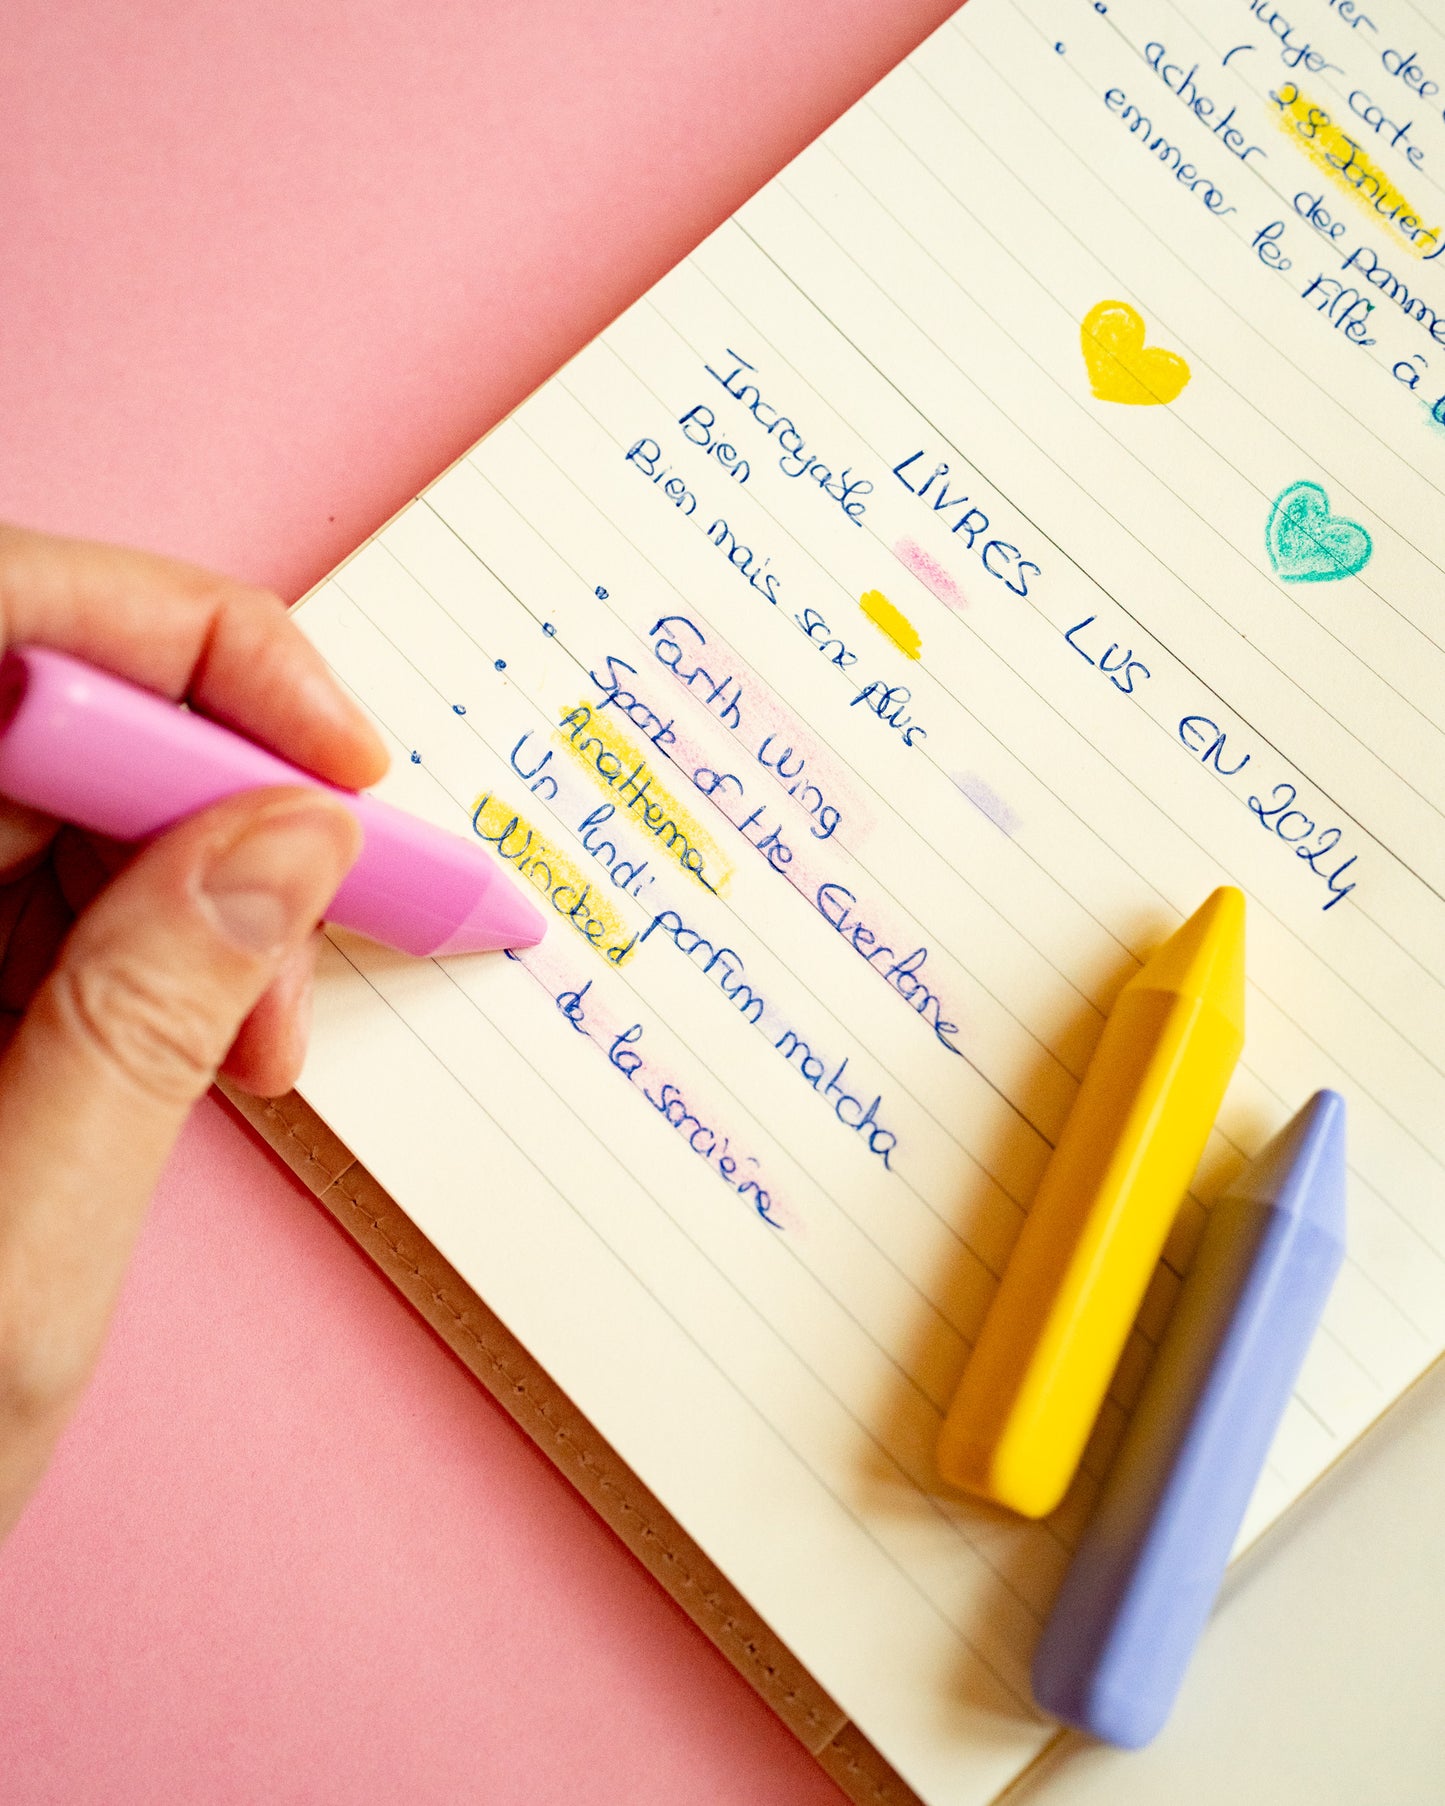 des
carte
( 28 Janvier)
• acheter des pomme
• emmener les filles à
LIVRES LUS EN 2024
Incroyable
Bien
Bien mais sans plus
• Fourth Wing
• Spark of the Everflame
• Anathema
• Un lundi parfum matcha
• Wincked
de la sorcière